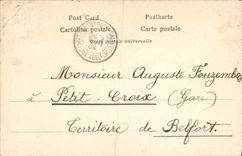 Post Card Postkarte
Cartolina postale Carte postale
Union postale universelle
Monsieur Auguste Fouzembe
à Petit-Croix (Gare)
Territoire de Belfort.